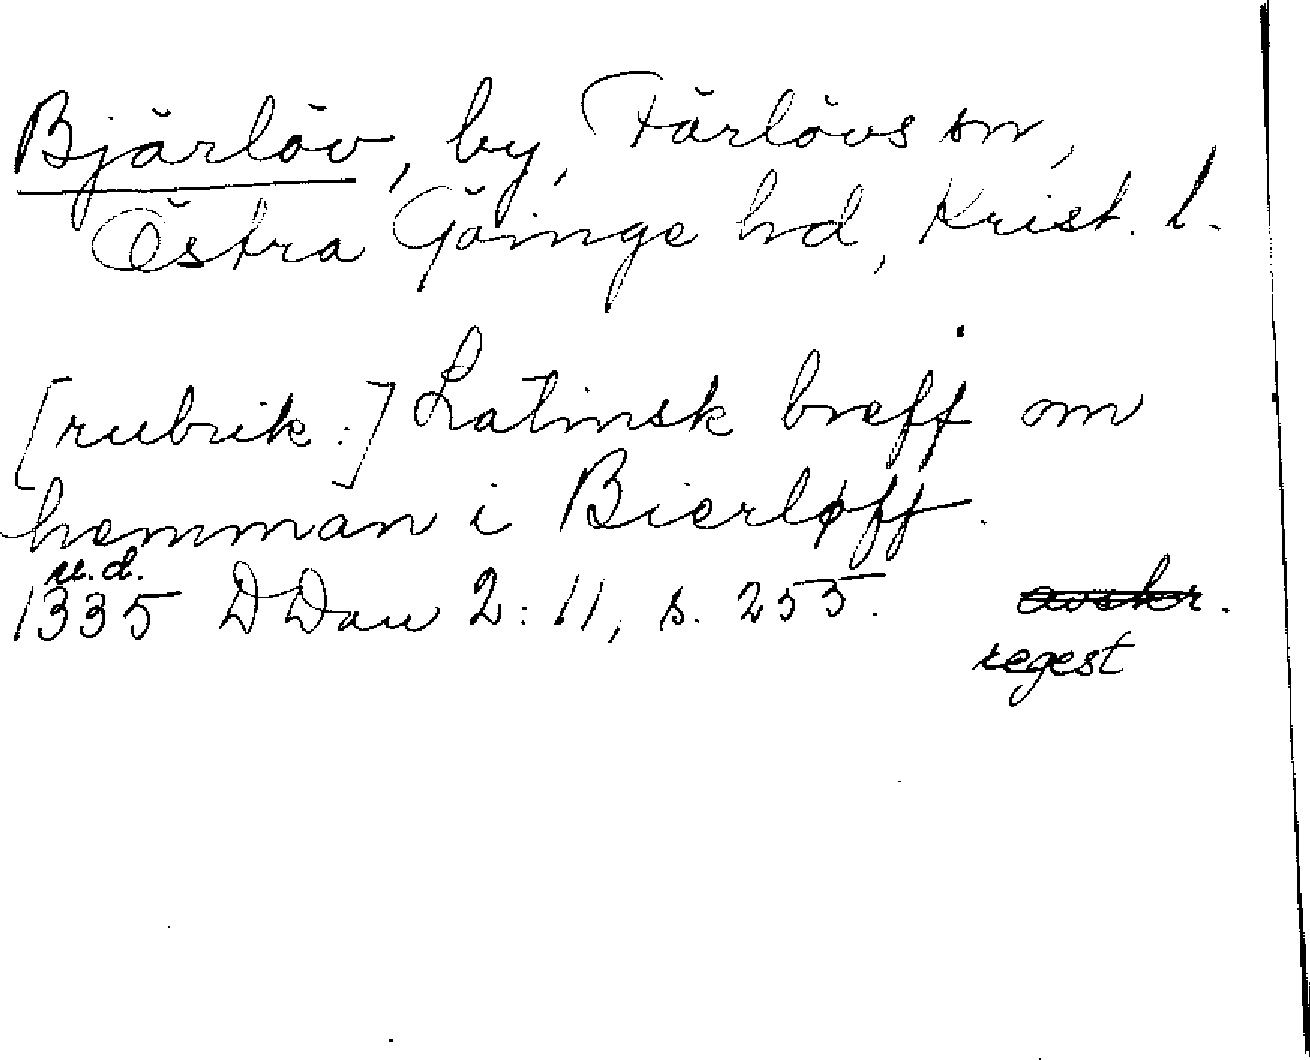 Bjärlöv, by, Färlövs sn,
Östra Göinge hd, Krist. l.
[rubrik:] Latinsk breff om
hemman i Bierløff.
u.d.
1335 DDan 2:11, s. 255. avskr.
regest